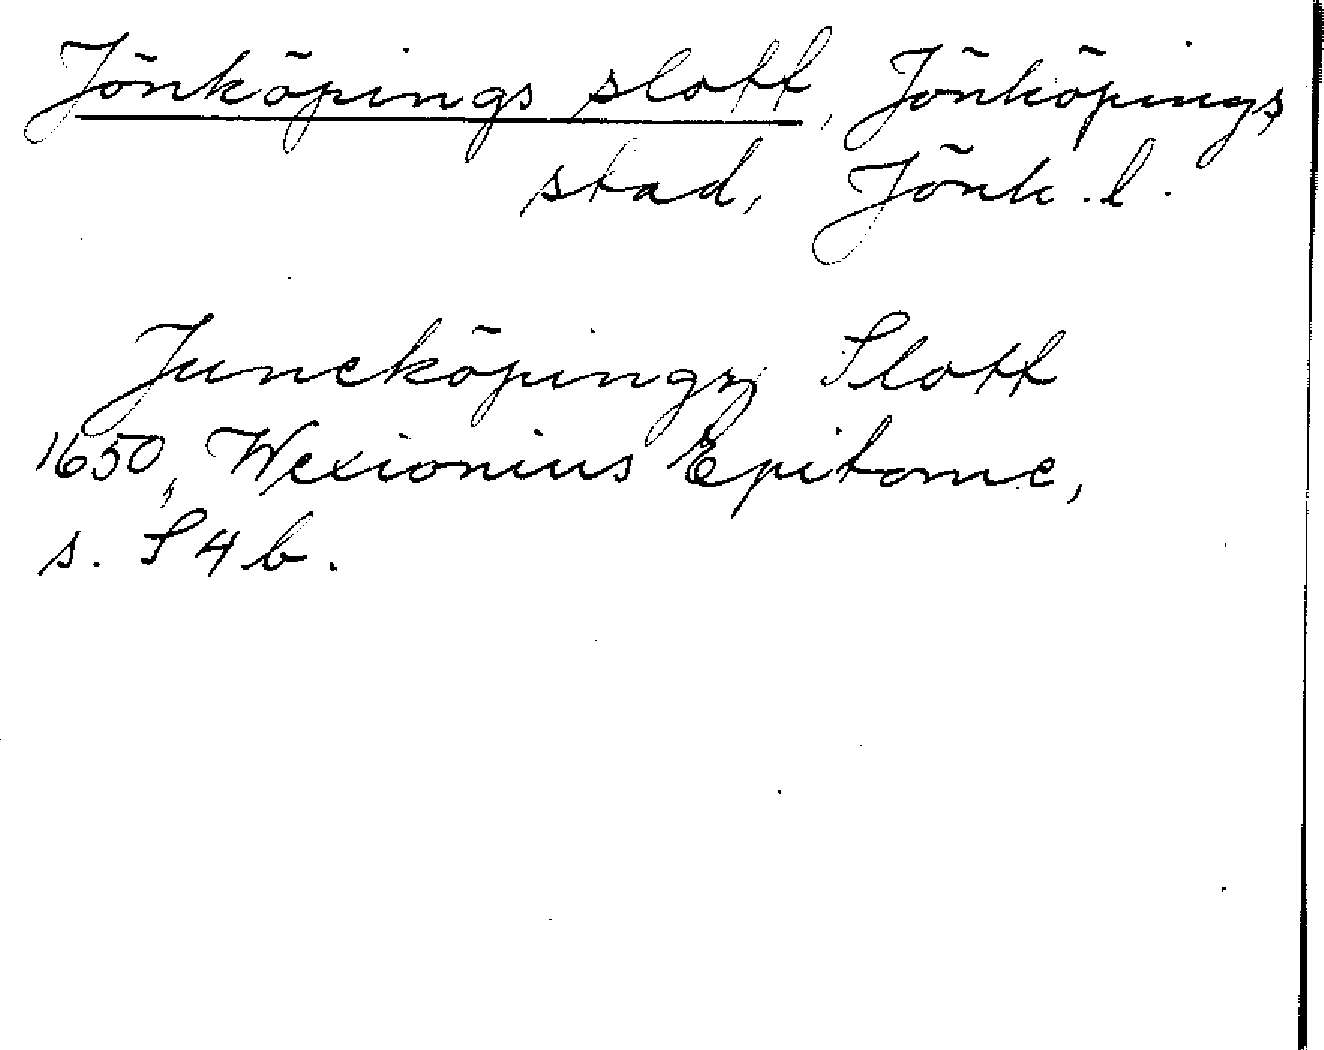 Jönköpings slott, Jönköpings
stad, Jönk. l.
Juneköpingz Slott
1650, Wexionius Epitome,
s. S 4 b.